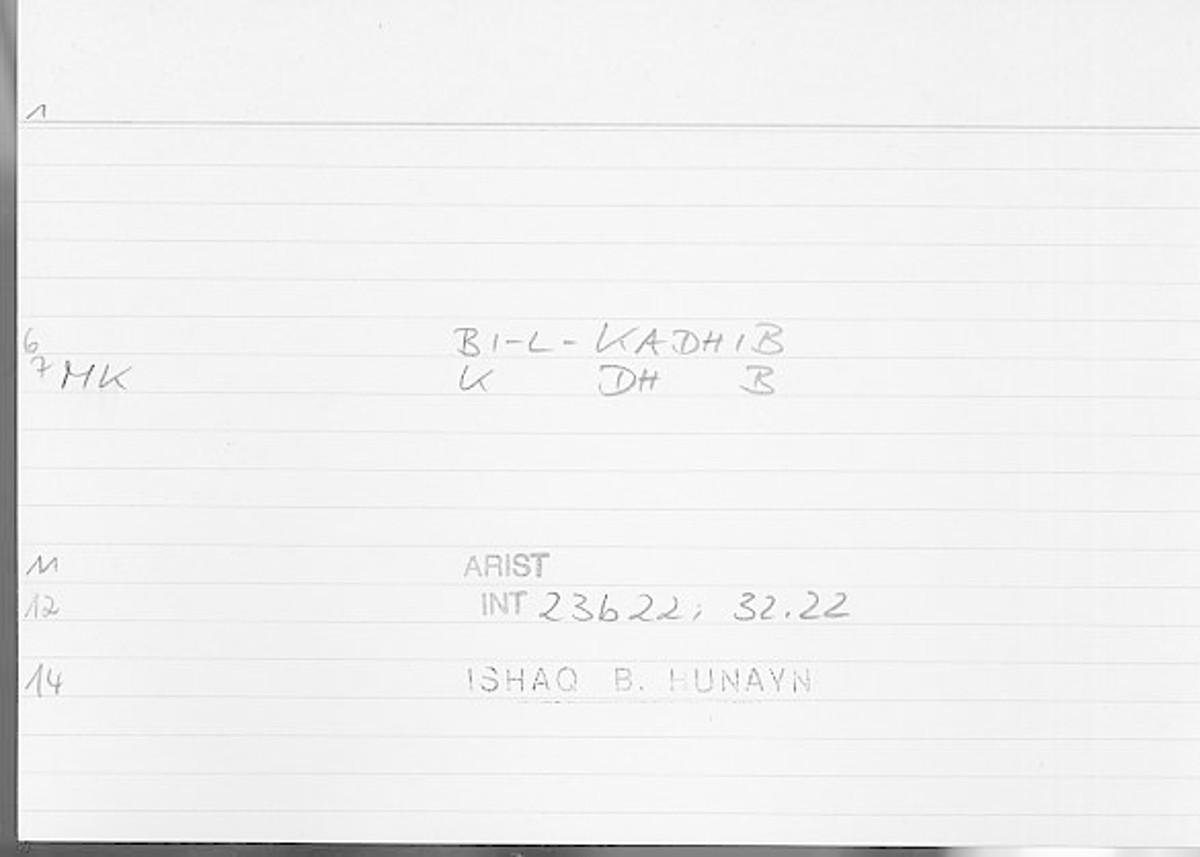 1
6 BI-L-KADHIB
7 MK K DH B
11 ARIST
12 INT 23b22; 32.22
14 ISHAQ B. HUNAYN